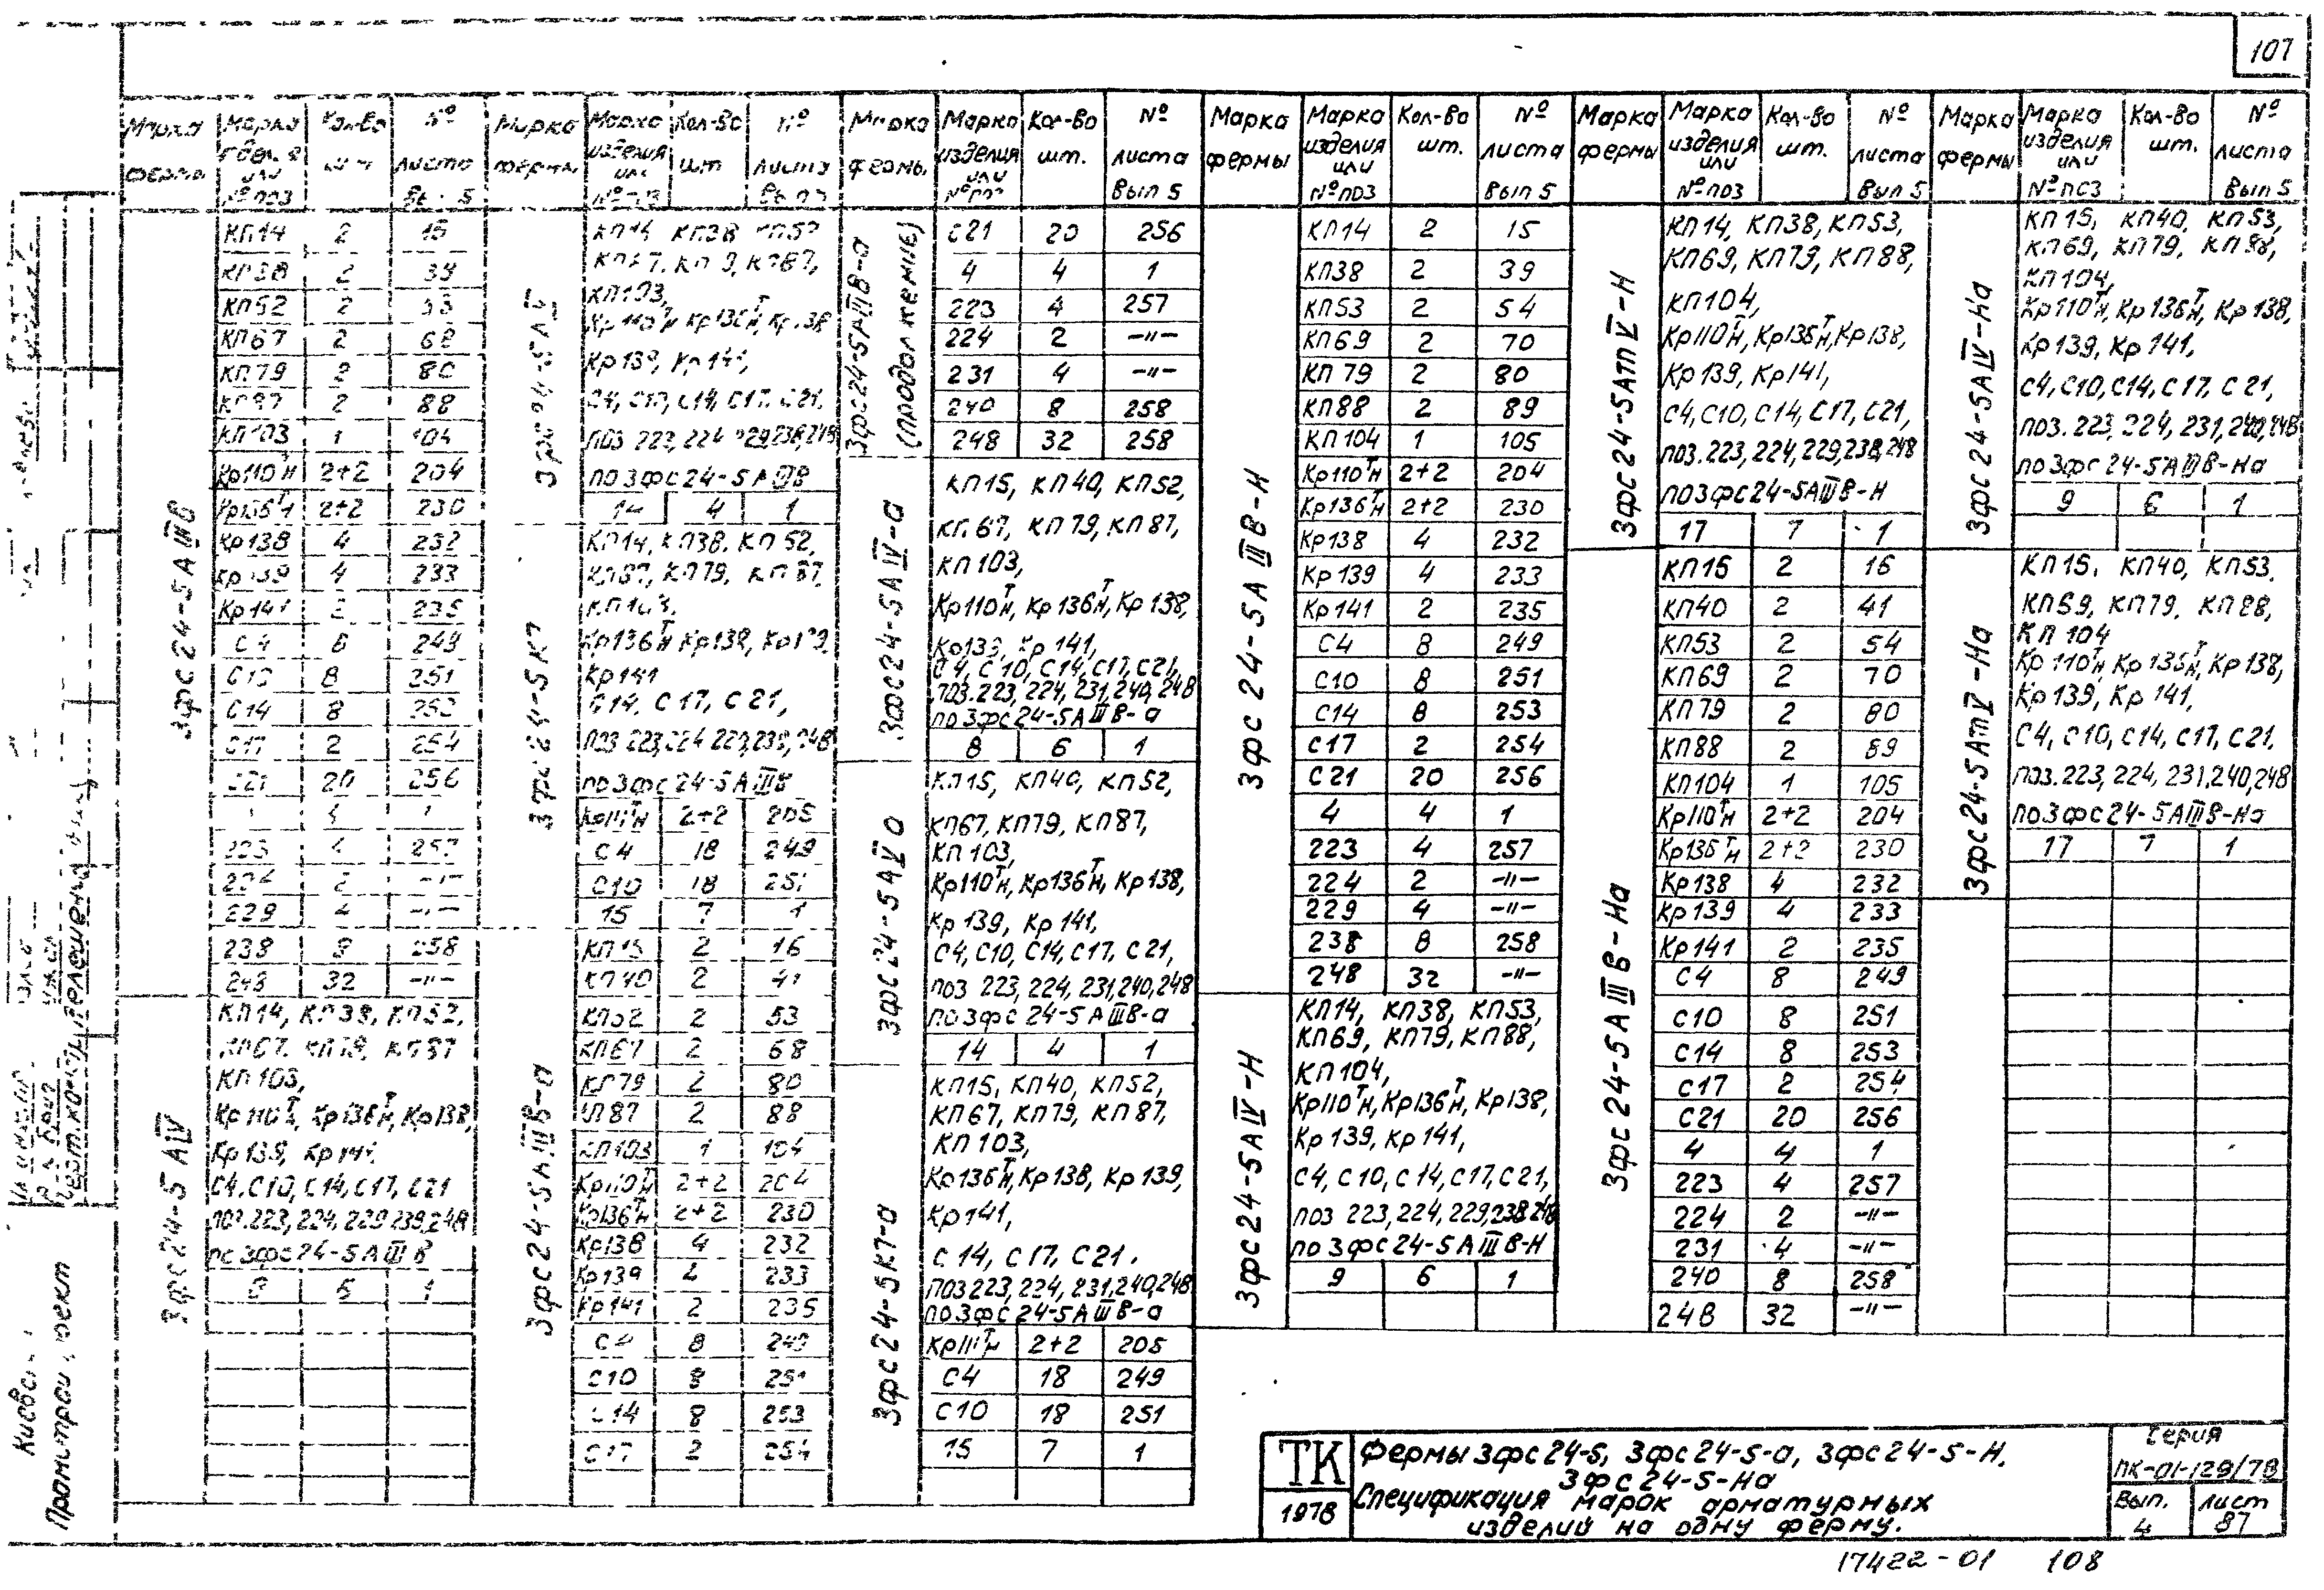 107
Марка фермы | Марка изделия или № поз | Кол-во шт | № листа Вып 5
3фс24-5АIIIВ
КП14 2 15
КП38 2 39
КП52 2 53
КП67 2 68
КП79 2 80
КП87 2 88
КП103 1 104
Кр110тн 2+2 204
Кр136тн 2+2 230
Кр138 4 232
Кр139 4 233
Кр141 2 235
С4 8 249
С10 8 251
С14 8 253
С17 2 254
С21 20 256
4 4 1
223 4 257
224 2 -"-
229 4 -"-
238 8 258
248 32 -"-
3фс24-5АIV
КП14, КП38, КП52,
КП67, КП79, КП87
КП103,
Кр110тн, Кр136тн, Кр138,
Кр139, Кр141,
С4, С10, С14, С17, С21
поз.223, 224, 229, 238, 248
по 3фс24-5АIIIВ
8 6 1
Марка фермы | Марка изделия или № поз | Кол-во шт | № листа Вып 5
3фс24-5АV
КП14, КП38, КП52
КП67, КП79, КП87,
КП103,
Кр110тн, Кр136тн, Кр138
Кр139, Кр141,
С4, С10, С14, С17, С21,
поз 223, 224, 229, 238, 248
по 3фс24-5АIIIВ
14 4 1
3фс24-5К7
КП14, КП38, КП52,
КП67, КП79, КП87,
КП103,
Кр136тн, Кр138, Кр139,
Кр141
С14, С17, С21,
поз 223, 224, 229, 238, 248
по 3фс24-5АIIIВ
Кр111тн 2+2 205
С4 18 249
С10 18 251
15 7 1
3фс24-5АIIIВ-а
КП15 2 16
КП40 2 41
КП52 2 53
КП67 2 68
КП79 2 80
КП87 2 88
КП103 1 104
Кр110тн 2+2 204
Кр136тн 2+2 230
Кр138 4 232
Кр139 4 233
Кр141 2 235
С4 8 249
С10 8 251
С14 8 253
С17 2 254
Марка фермы | Марка изделия или № поз | Кол-во шт. | № листа Вып 5
3фс24-5АIIIВ-а (продолжение)
С21 20 256
4 4 1
223 4 257
224 2 -"-
231 4 -"-
240 8 258
248 32 258
3фс24-5АIV-а
КП15, КП40, КП52,
КП67, КП79, КП87,
КП103,
Кр110тн, Кр136тн, Кр138,
Кр139, Кр141,
С4, С10, С14, С17, С21,
поз.223, 224, 231, 240, 248
по 3фс24-5АIIIВ-а
8 6 1
3фс24-5АV а
КП15, КП40, КП52,
КП67, КП79, КП87,
КП103,
Кр110тн, Кр136тн, Кр138,
Кр139, Кр141,
С4, С10, С14, С17, С21,
поз 223, 224, 231, 240, 248
по 3фс24-5АIIIВ-а
14 4 1
3фс24-5К7-а
КП15, КП40, КП52,
КП67, КП79, КП87,
КП103,
Кр136тн, Кр138, Кр139,
Кр141,
С14, С17, С21.
поз 223, 224, 231, 240, 248
по 3фс24-5АIIIВ-а
Кр111тн 2+2 205
С4 18 249
С10 18 251
15 7 1
Марка фермы | Марка изделия или № поз | Кол-во шт. | № листа Вып 5
3фс24-5АIIIВ-Н
КП14 2 15
КП38 2 39
КП53 2 54
КП69 2 70
КП79 2 80
КП88 2 89
КП104 1 105
Кр110тн 2+2 204
Кр136тн 2+2 230
Кр138 4 232
Кр139 4 233
Кр141 2 235
С4 8 249
С10 8 251
С14 8 253
С17 2 254
С21 20 256
4 4 1
223 4 257
224 2 -"-
229 4 -"-
238 8 258
248 32 -"-
3фс24-5АIV-Н
КП14, КП38, КП53,
КП69, КП79, КП88,
КП104,
Кр110тн, Кр136тн, Кр138,
Кр139, Кр141,
С4, С10, С14, С17, С21,
поз 223, 224, 229, 238, 248
по 3фс24-5АIIIВ-Н
9 6 1
Марка фермы | Марка изделия или № поз | Кол-во шт. | № листа Вып 5
3фс24-5АтV-Н
КП14, КП38, КП53,
КП69, КП79, КП88,
КП104,
Кр110тн, Кр136тн, Кр138,
Кр139, Кр141,
С4, С10, С14, С17, С21,
поз.223, 224, 229, 238, 248
по 3фс24-5АIIIВ-Н
17 7 1
3фс24-5АIIIВ-На
КП15 2 16
КП40 2 41
КП53 2 54
КП69 2 70
КП79 2 80
КП88 2 89
КП104 1 105
Кр110тн 2+2 204
Кр136тн 2+2 230
Кр138 4 232
Кр139 4 233
Кр141 2 235
С4 8 249
С10 8 251
С14 8 253
С17 2 254
С21 20 256
4 4 1
223 4 257
224 2 -"-
231 4 -"-
240 8 258
248 32 -"-
Марка фермы | Марка изделия или № поз | Кол-во шт. | № листа Вып 5
3фс24-5АIV-На
КП15, КП40, КП53,
КП69, КП79, КП88,
КП104,
Кр110тн, Кр136тн, Кр138,
Кр139, Кр141,
С4, С10, С14, С17, С21,
поз.223, 224, 231, 240, 248
по 3фс24-5АIIIВ-На
9 6 1
3фс24-5АтV-На
КП15, КП40, КП53,
КП69, КП79, КП88,
КП104
Кр110тн, Кр136тн, Кр138,
Кр139, Кр141,
С4, С10, С14, С17, С21,
поз.223, 224, 231, 240, 248
по 3фс24-5АIIIВ-На
17 7 1
ТК
1978
Фермы 3фс24-5, 3фс24-5-а, 3фс24-5-Н,
3фс24-5-На
Спецификация марок арматурных
изделий на одну ферму.
Серия
ПК-01-129/78
Вып. 4
лист 87
17422-01 108